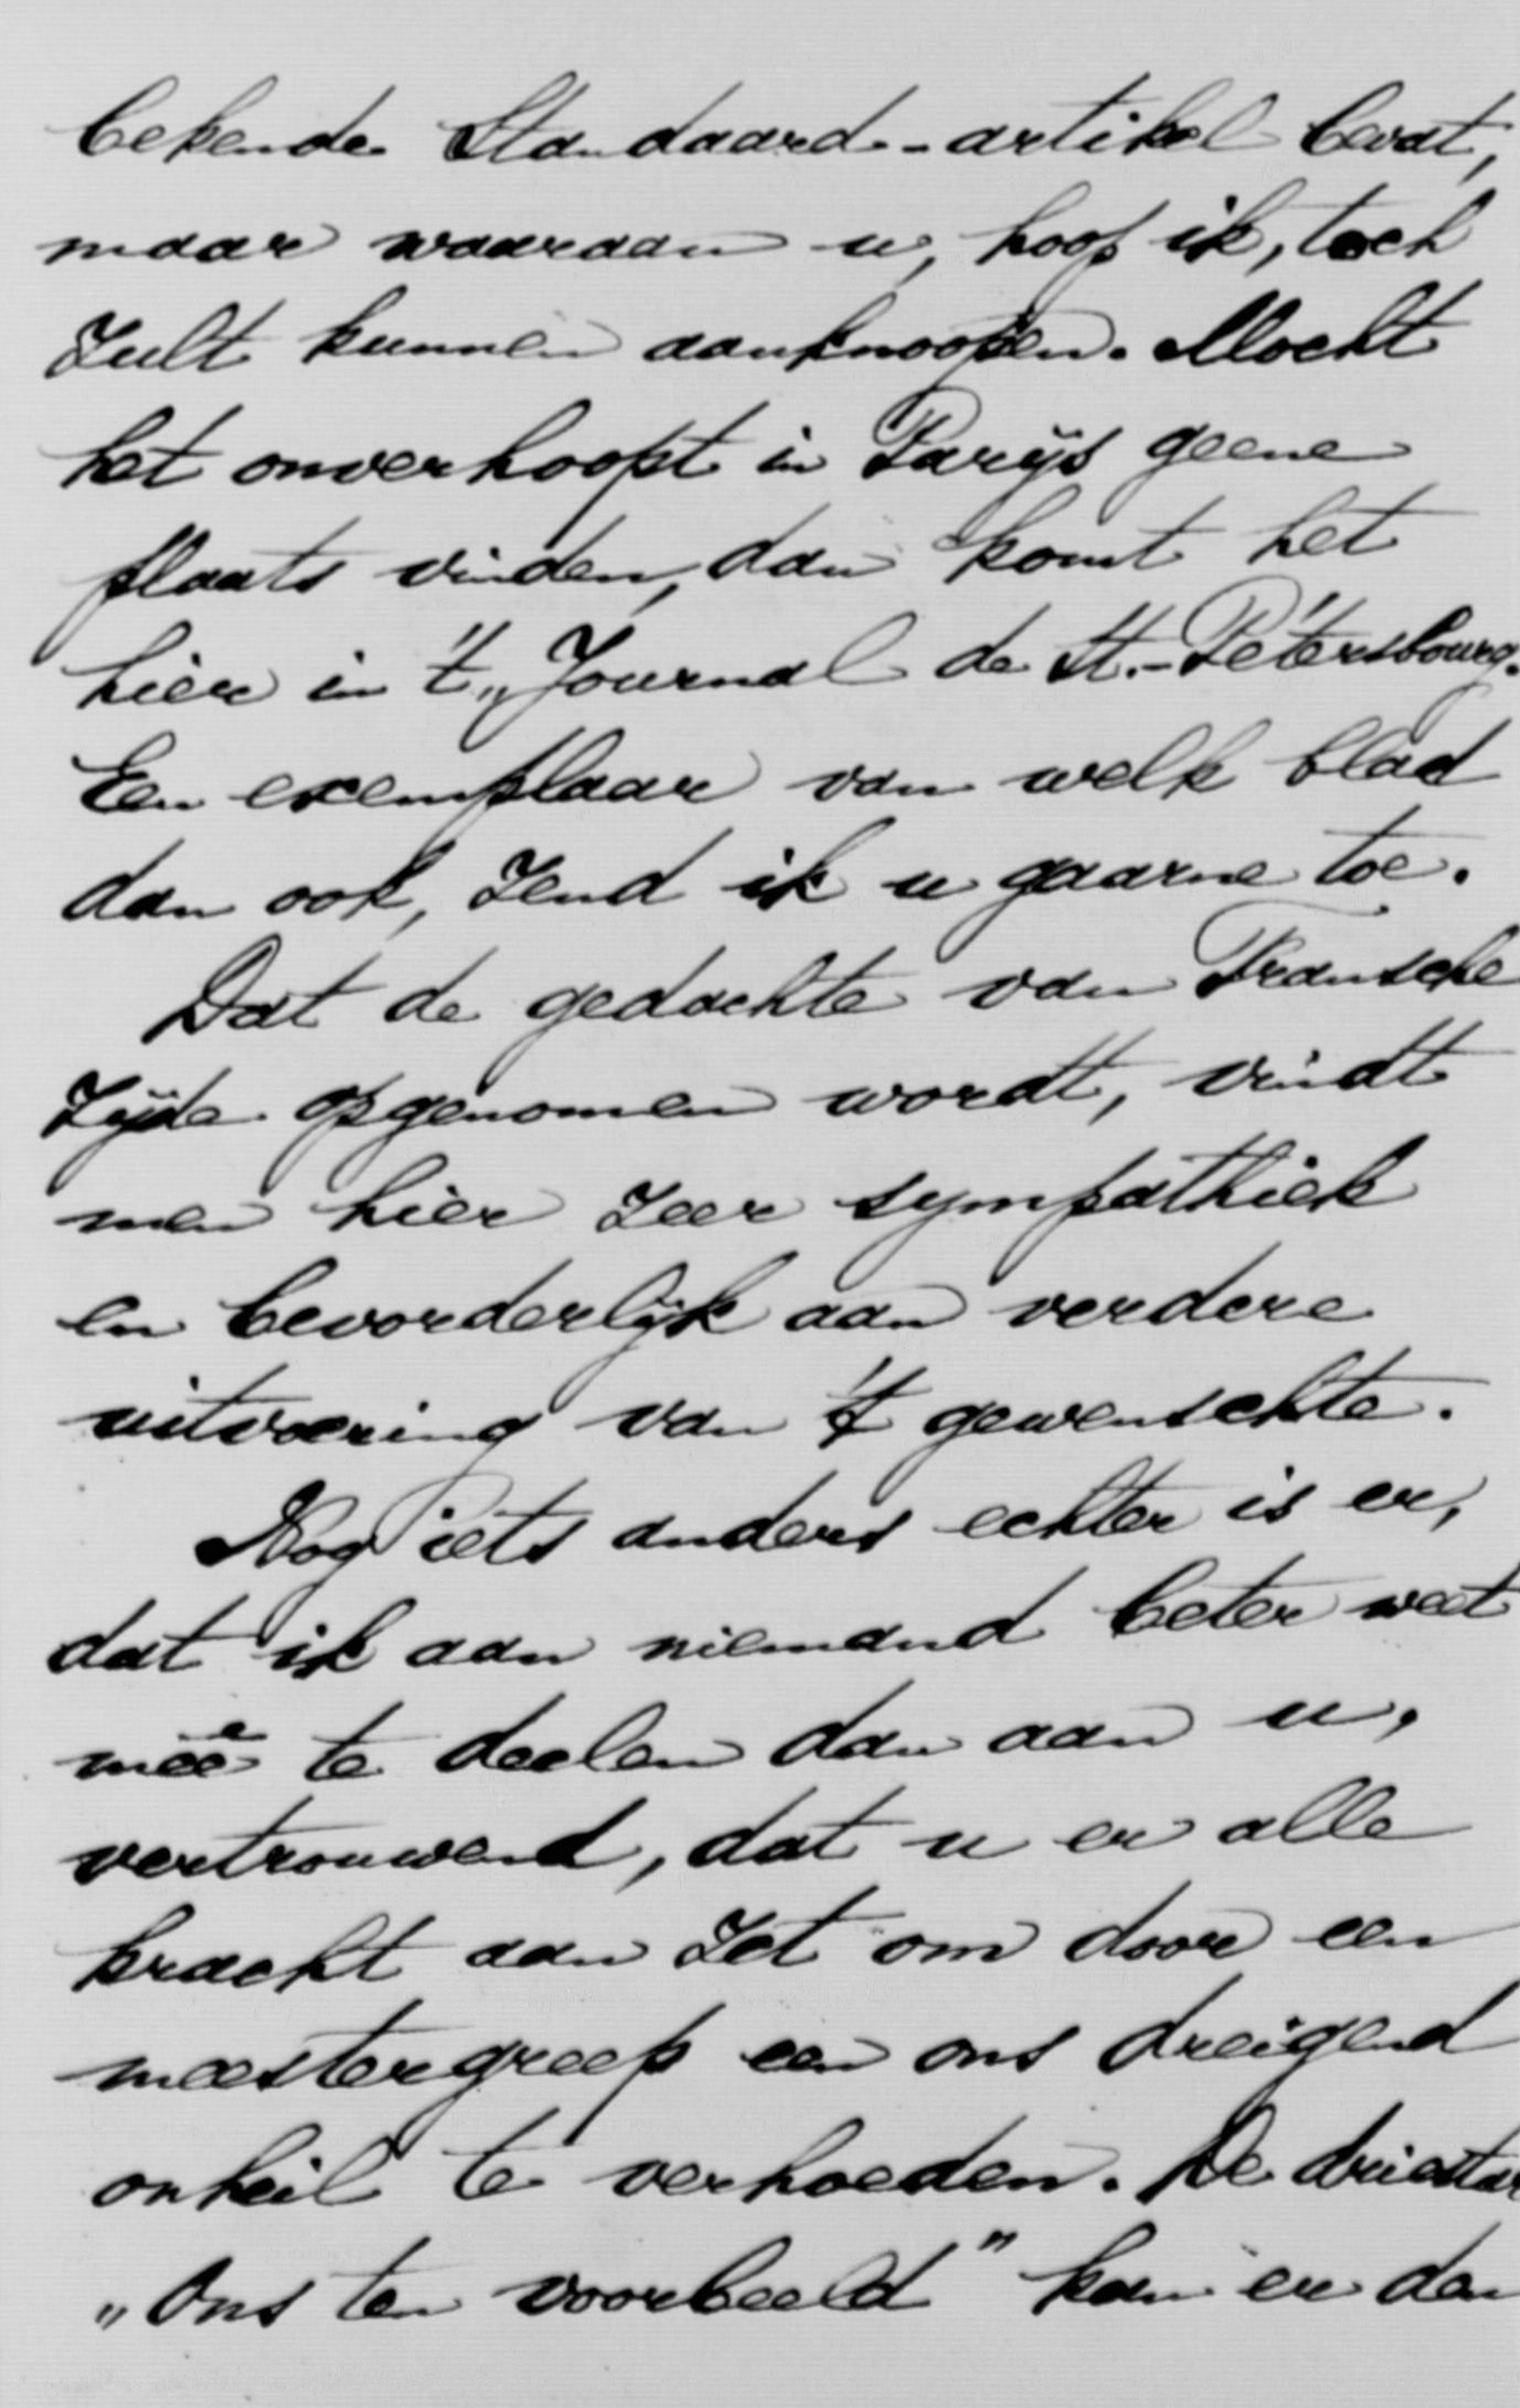 bekende Standaard-artikel bevat,
maar waaraan u, hoop ik, toch
zult kunnen aanknoopen. Mocht
het onverhoopt in Parijs geene
plaats vinden, dan komt het
hier in 't „Journal de St.-Pétersbourg.
Een exemplaar van welk blad
dan ook, zend ik u gaarne toe.
Dat de gedachte van Fransche
zijde opgenomen wordt, vindt
men hier zeer sympathiek
en bevorderlijk aan verdere
uitvoering van 't gewenschte.
Nog iets anders echter is er,
dat ik aan niemand beter weet
meê te deelen dan aan u,
vertrouwend, dat u er alle
kracht aan zet om door een
meestergreep een ons dreigend
onheil te verhoeden. De driestar
„Ons ten voorbeeld" kan er dan